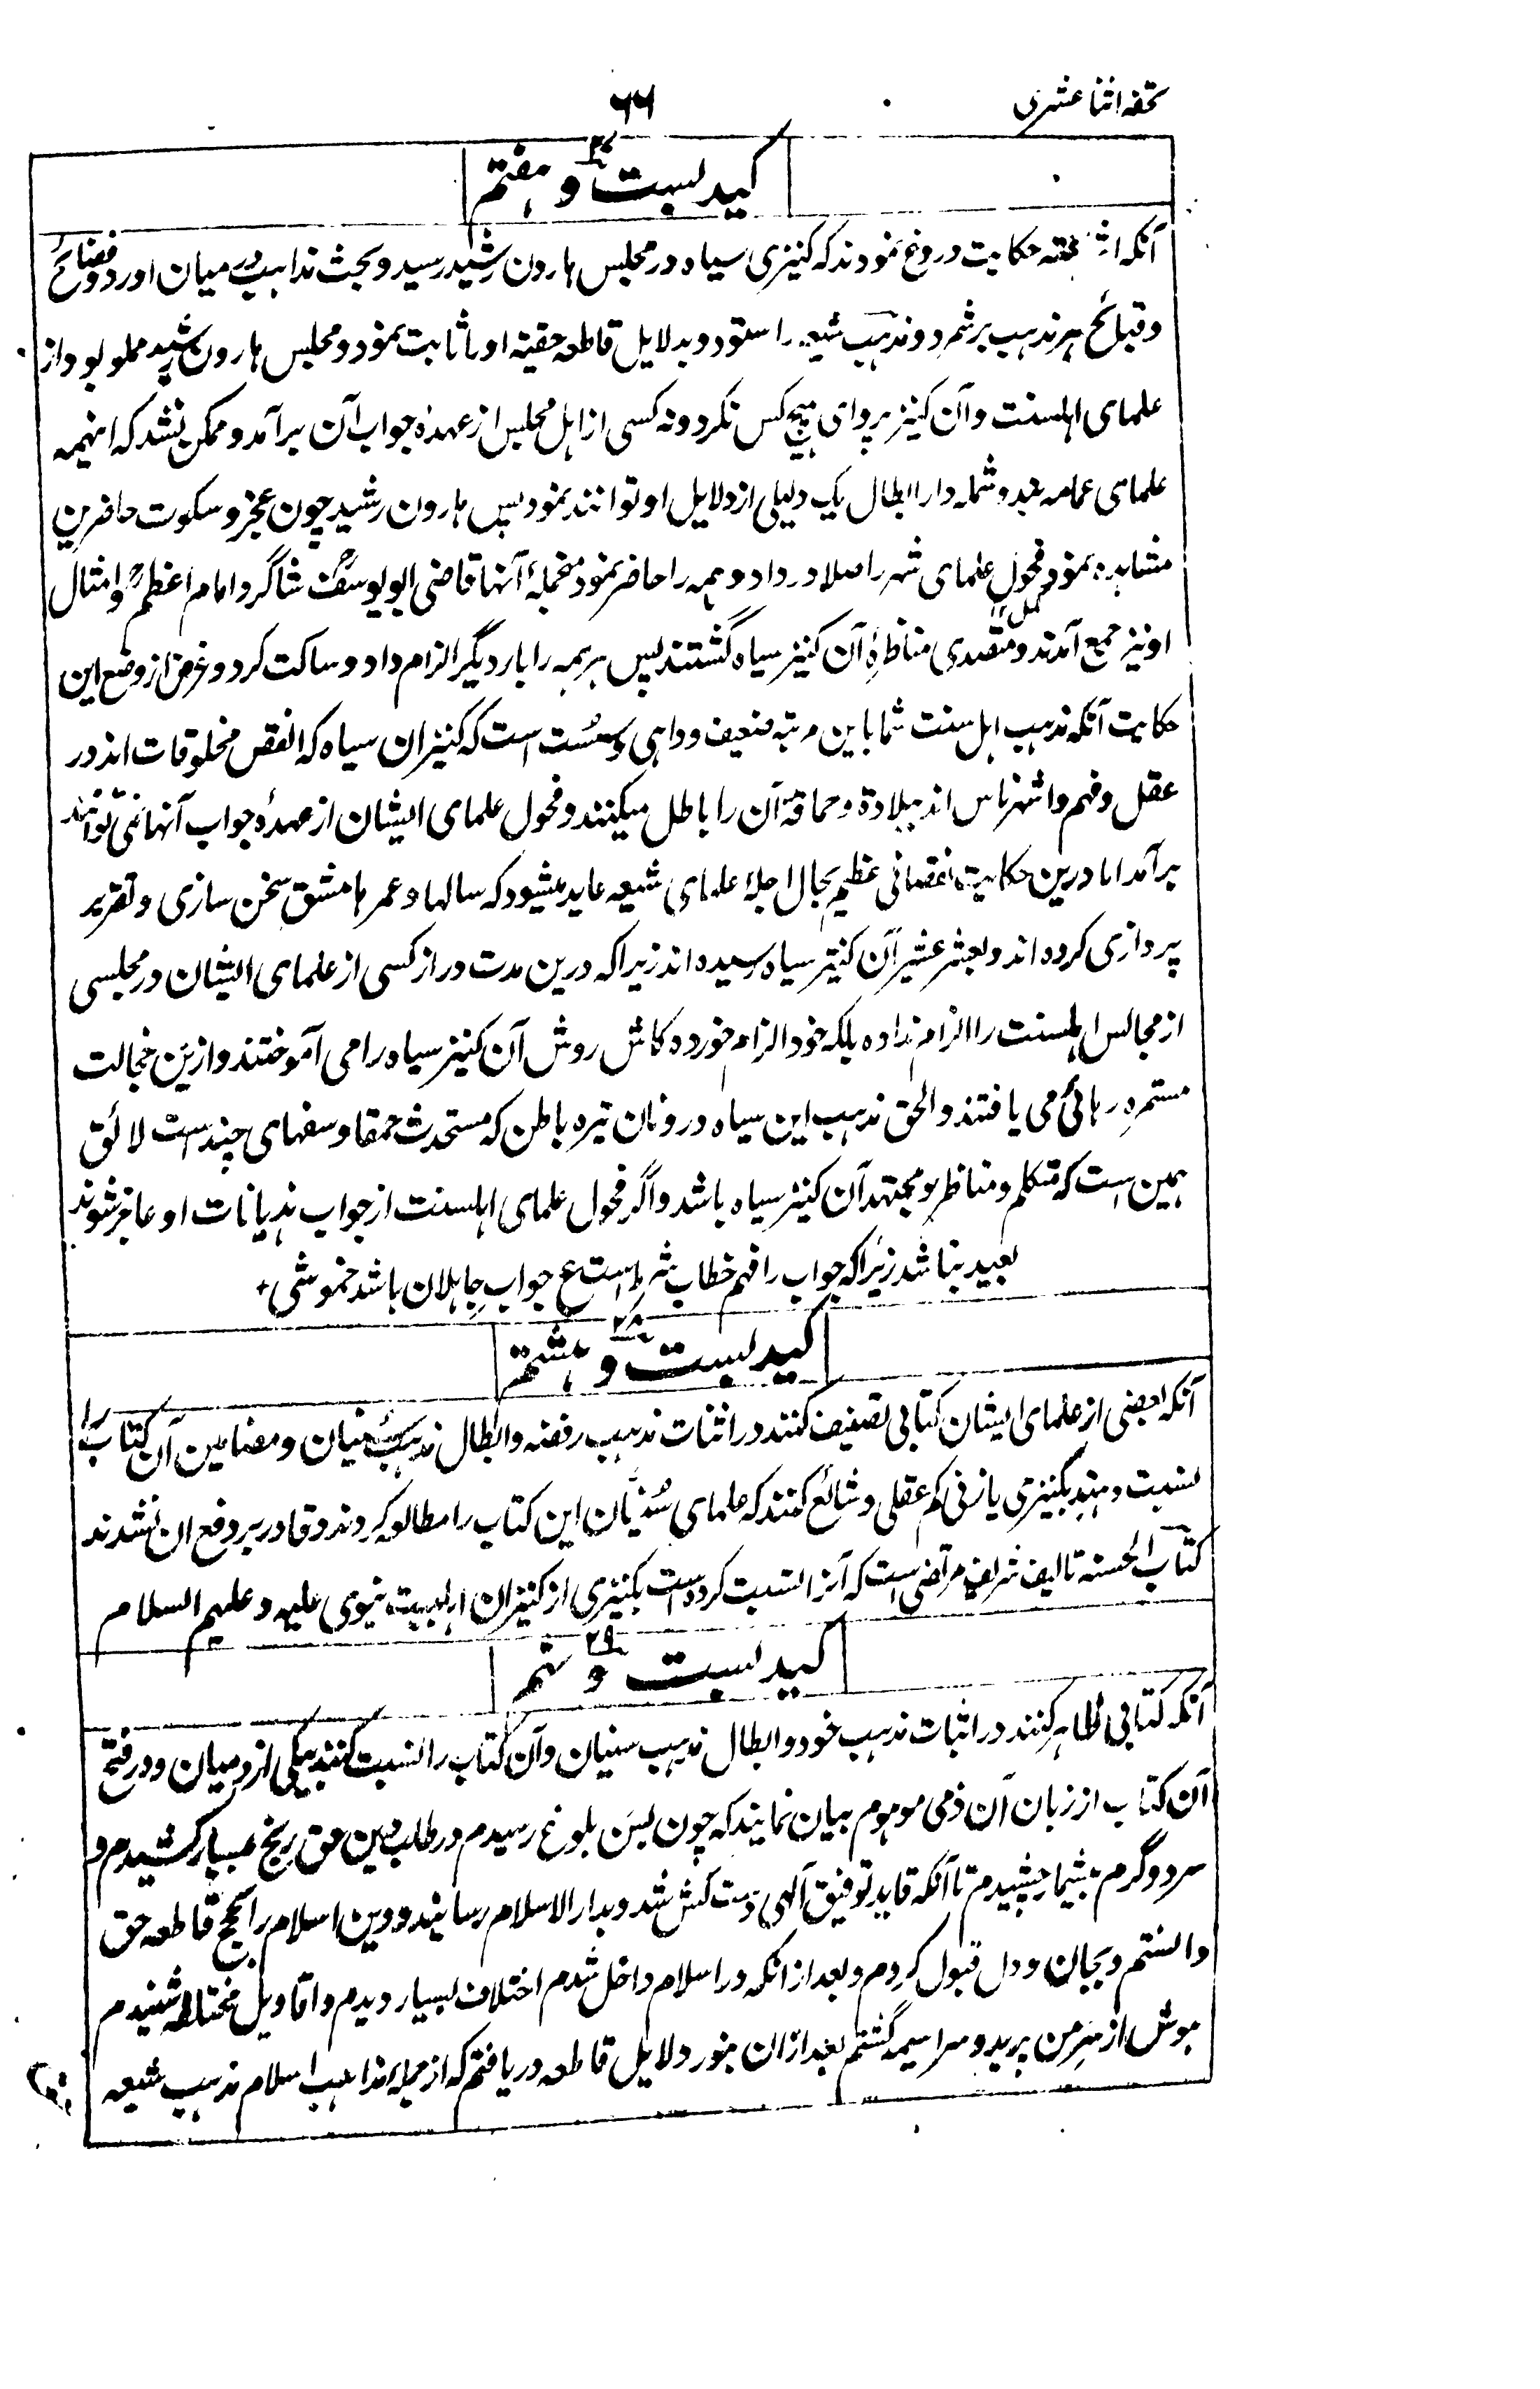 تحفه اثنا عشری
۶۶
کید بست و هفتم
۲۷
آنکه حکایت دروغ نمودند که کنیزی سیاه در مجلس هارون رشید رسید و بحث مذاهب در میان اورد و فضائح
و قبائح هر مذهب برشمرد و مذهب شیعه را ستود و بدلایل قاطعه حقیة او را ثابت نمود و مجلس هارون رشید مملو بود از
علمای اهلسنت و آن کنیز پروای هیچ کس نکرد و نه کسی از اهل مجلس از عهدهٔ جواب آن برآمد و ممکن نشد که اینهمه
علمای عمامه بند و شمله دار ابطال یک دلیلی از دلایل او توانند نمود پس هارون رشید چون عجز و سکوت حاضرین
مشاهده نمود فحول علمای شهر را صلا در داد و همه را حاضر نمود منجملهٔ آنها قاضی ابو یوسف شاگرد امام اعظم و امثال
او نیز جمع آمدند و متصدی مناظرهٔ آن کنیز سیاه گشتند پس هر همه را بار دیگر الزام داد و ساکت کرد و غرض از وضع این
حکایت آنکه مذهب اهل سنت شما باین مرتبه ضعیف و واهی و سست است که کنیزان سیاه که انقص مخلوقات اند در
عقل و فهم و اشهر ناس اند ببلادة و حماقة آن را باطل میکنند و فحول علمای ایشان از عهدهٔ جواب آنها نمی توانند
برآمد اما درین حکایت نقصانی عظیم بحال اجلهٔ علمای شیعه عاید میشود که سالها و عمرها مشق سخن سازی و تقریر
پردازی کرده اند و بعشر عشیر آن کنیز سیاه نرسیده اند زیرا که درین مدت دراز کسی از علمای ایشان در مجلسی
از مجالس اهلسنت را الزام نداده بلکه خود الزام خورده کاش روش آن کنیز سیاه را می آموختند و ازین خجالت
مستمره رهائی می یافتند و الحق مذهب این سیاه درونان تیره باطن که مستحدث حمقا و سفهای چند است لائق
همین است که متکلم و مناظر و مجتهد آن کنیز سیاه باشد و اگر فحول علمای اهلسنت از جواب هذیانات او عاجز شوند
بعید نباشد زیرا که جواب را فهم خطاب شرط است ع جواب جاهلان باشد خموشی
کید بست و هشتم
۲۸
آنکه بعضی از علمای ایشان کتابی تصنیف کنند در اثبات مذهب رفضه و ابطال مذهب سنیان و مضامین آن کتاب را
نسبت دهند بکنیزی یا زنی کم عقلی و شائع کنند که علمای سُنّیان این کتاب را مطالعه کردند و قادر بر دفع ان نشدند
کتاب الحسنه تالیف شریف مرتضی است که آنرا نسبت کرده است بکنیزی از کنیزان اهلبیت نبوی علیه و علیهم السلام
کید بست و نهم
۲۹
آنکه کتابی ظاهر کنند در اثبات مذهب خود و ابطال مذهب سنیان و آن کتاب را نسبت کنند بیکی از ذمیان و در فتح
آن کتاب از زبان آن ذمی موهوم بیان نمایند که چون بسن بلوغ رسیدم در طلب دین حق رنج بسیار کشیدم و
سرد و گرم بیشمار چشیدم تا آنکه قاید توفیق آلهی دست کش شد و بدار الاسلام رسانید و دین اسلام را بحجج قاطعه حق
دانستم و بجان و دل قبول کردم و بعد از انکه در اسلام داخل شدم اختلاف بسیار دیدم و اقاویل مختلفه شنیدم
هوش از سر من پرید و سراسیمه گشتم بعد ازان بنور دلایل قاطعه دریافتم که از جملهٔ مذاهب اسلام مذهب شیعه